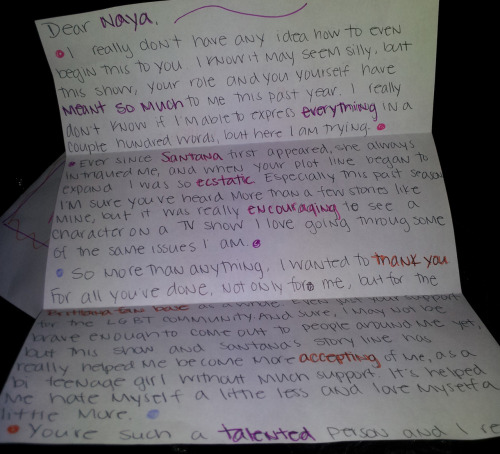 Dear Naya,
I really don't have any idea how to even
begin this to you I know it may seem silly, but
this show, your role and you yourself have
meant so much to me this past year. I really
don't know if I'm able to express everything in a
couple hundred words, but here I am trying.
Ever since Santana first appeared, she always
intrigued me, and when your plot line began to
expand I was so ecstatic Especially this past season
I'm sure you've heard more than a few stories like
mine, but it was really encouraging to see a
character on a TV show I love going through some
of the same issues I am.
So more than anything, I wanted to thank you
For all you've done, not only for me, but for the
Brittana fan base as a whole. Even just your support
for the LGBT community. And sure, I may not be
brave enough to come out to people around me yet,
but this show and Santana's story line has
really helped me become more accepting of me, as a
bi teenage girl without much support. It's helped
me hate myself a little less and love myself a
little more.
You're such a talented person and I re